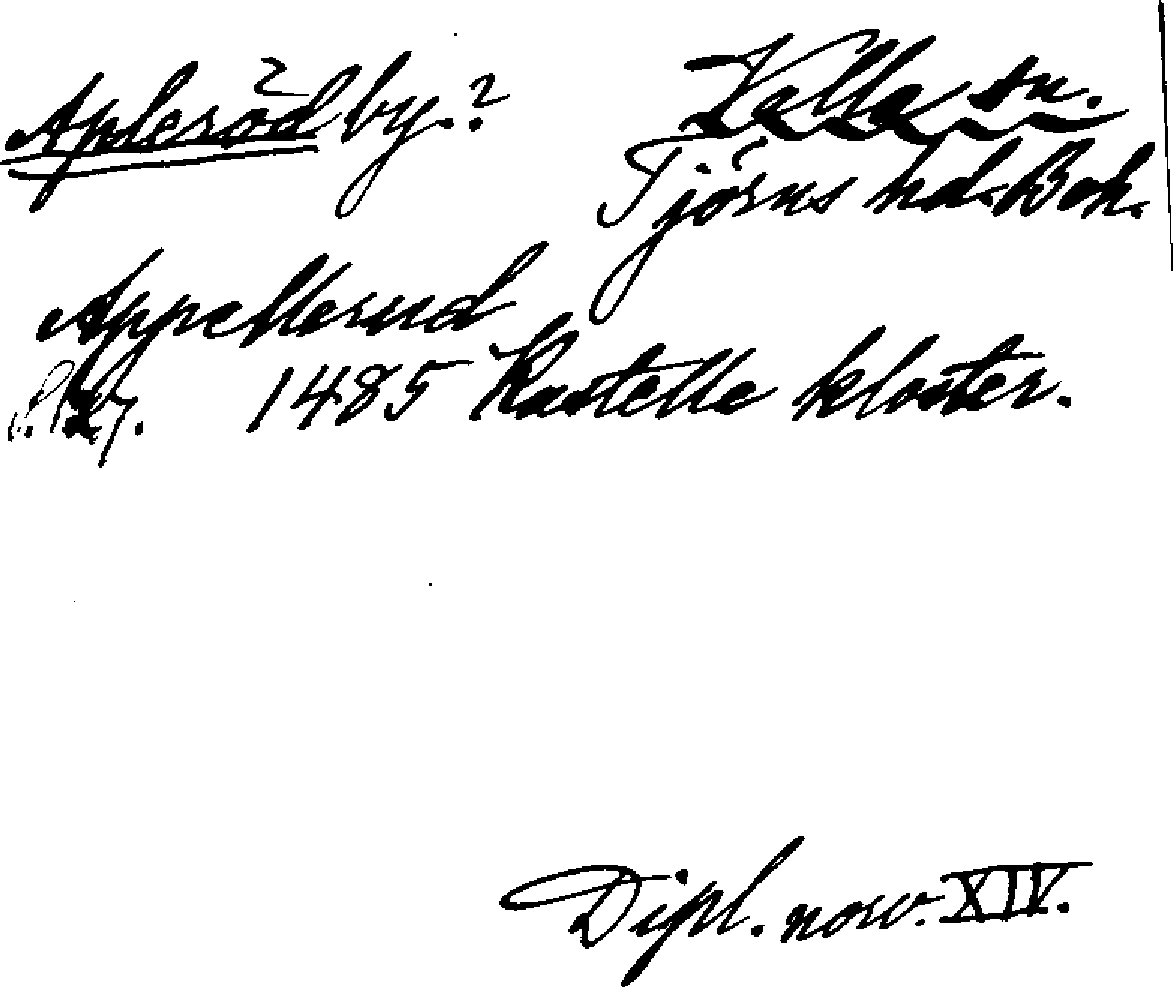 Apleröd by.? Valla sn.
Tjörns hd. Boh.
Appellerud
1485 Kastelle kloster.
Dipl. norv. XIV.